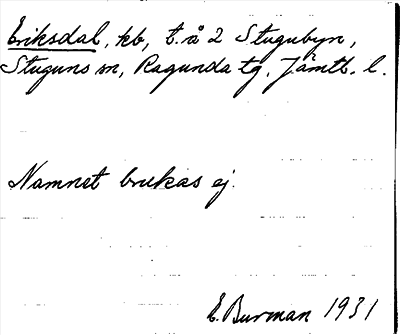 Eriksdal, kb, t. å 2 Stugubyn,
Stuguns sn, Ragunda tg, Jämtl. l.
Namnet brukas ej.
E. Burman 1931